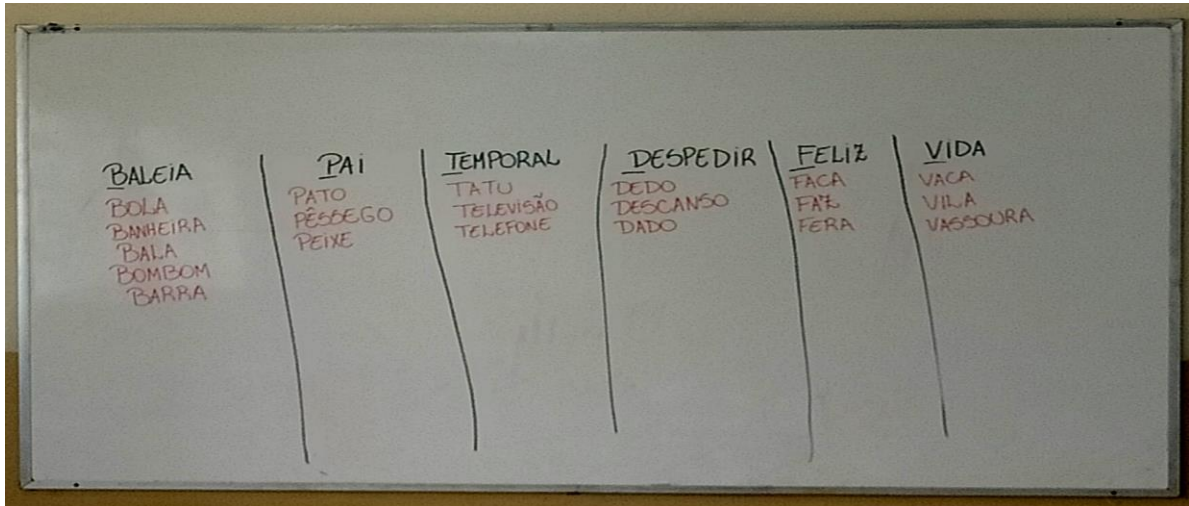 BALEIA
BOLA
BANHEIRA
BALA
BOMBOM
BARRA
PAI
PATO
PÊSSEGO
PEIXE
TEMPORAL
TATU
TELEVISÃO
TELEFONE
DESPEDIR
DEDO
DESCANSO
DADO
FELIZ
FACA
FAZ
FERA
VIDA
VACA
VILA
VASSOURA